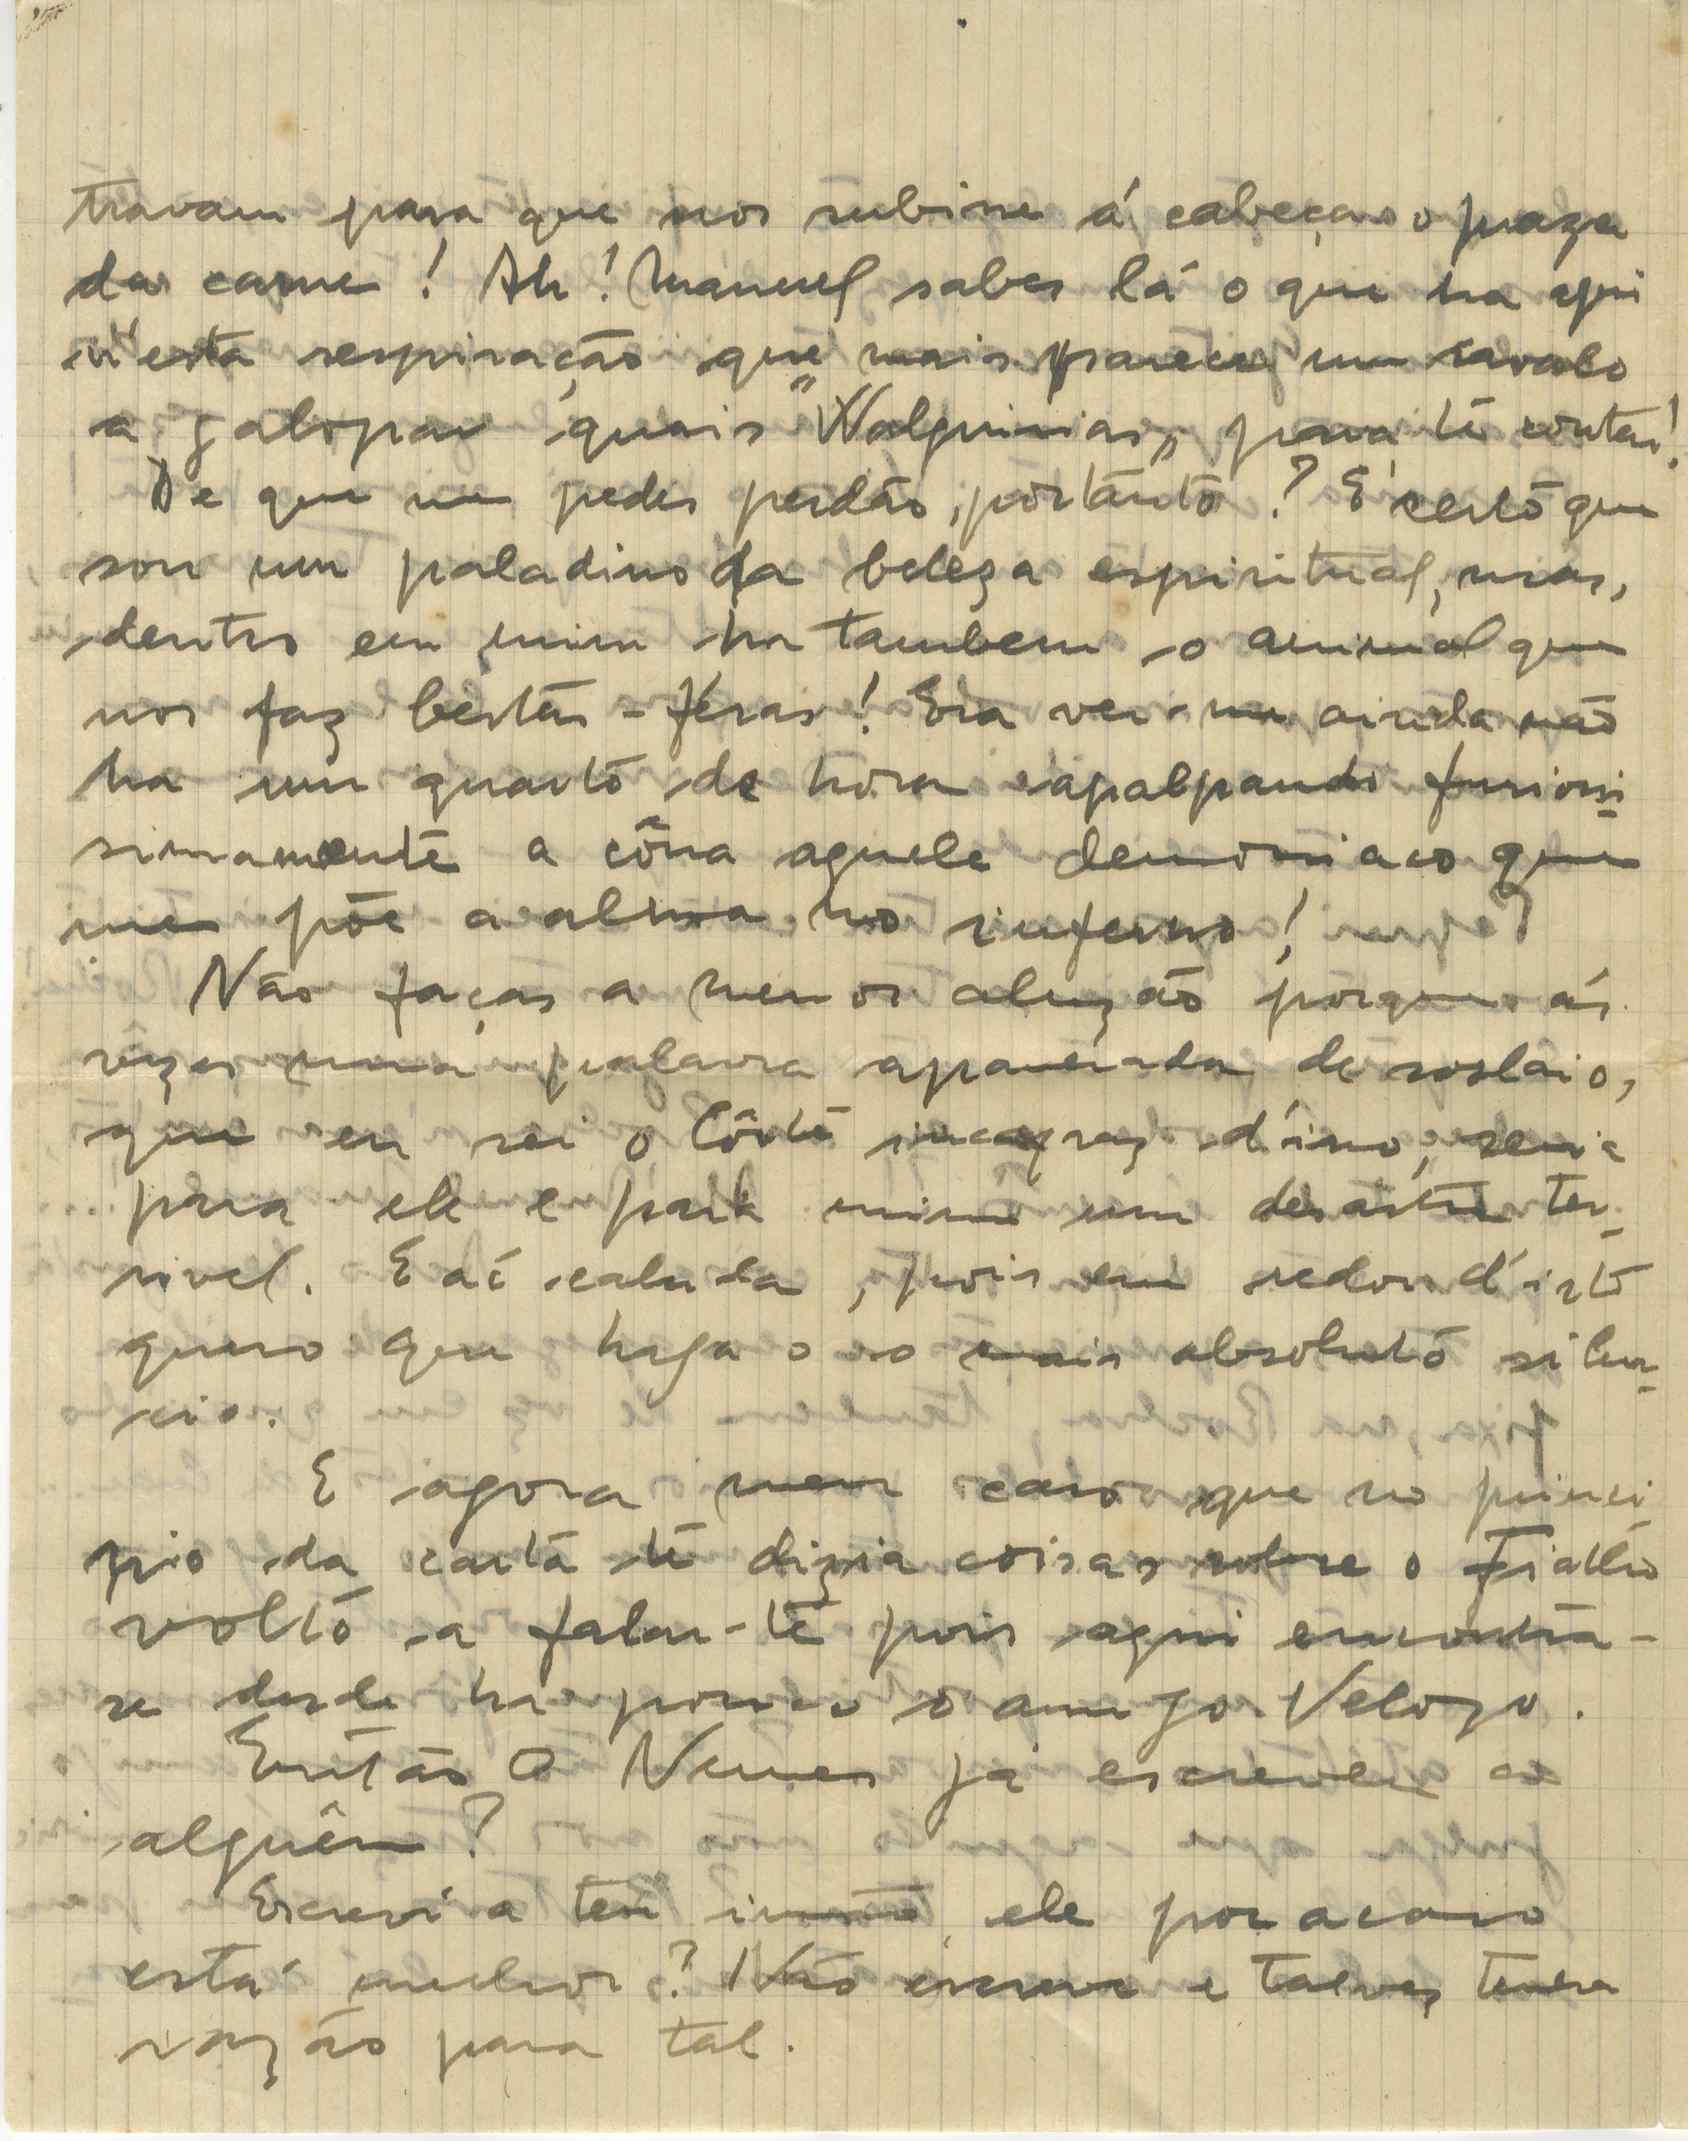 travam para que nos subisse á cabeça o prazer
da carne! Ah! Manuel sabes lá o que ha aqui
n'esta respiração que mais parece um cavalo
a galopar quais "Walquirias" para te contar!
De que me pedes perdão, portanto? É certo que
sou um paladino da beleza espiritual, mas,
dentro em mim ha tambem o animal que
nos faz bestas-féras! Era ver-me ainda não
ha um quarto de hora apalpando furiosi-
simamente a côna aquele demoniaco que
me põe a alma no inferno!
Não faças a menor aluzão porque ás
vêzes uma palavra apanhada de soslaio,
que eu sei o Côrte incapaz d'isso, seria
para ele e para mim um desastre ter-
rivel. E aí calada, pois em redor d'isto
quero que haja o mais absoluto silen-
cio.
E agora nem caso que no princi-
pio da carta te dizia coisas sobre o Fialho
volto a falar-te pois aqui encontra-
se desde ha pouco o amigo Velozo.
Então O Nunes já escreveu a
alguêm?
Escrevi a teu irmão, ele por acaso
está melhor? Não escreve e talvez tenha
razão para tal.